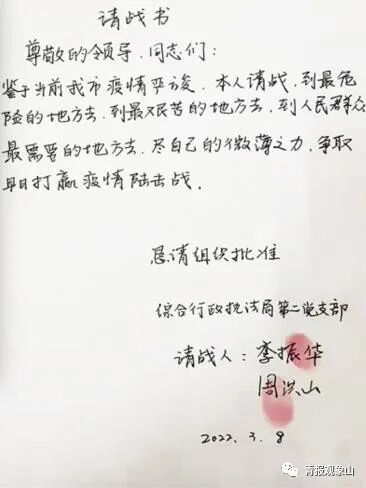 请战书
尊敬的领导、同志们：
鉴于当前我市疫情严峻，本人请战，到最危
险的地方去，到最艰苦的地方去，到人民群众
最需要的地方去，尽自己的微薄之力，争取
早日打赢疫情陆击战。
恳请组织批准
综合行政执法局第二党支部
请战人：李振华
周洪山
2022.3.8
青报观象山